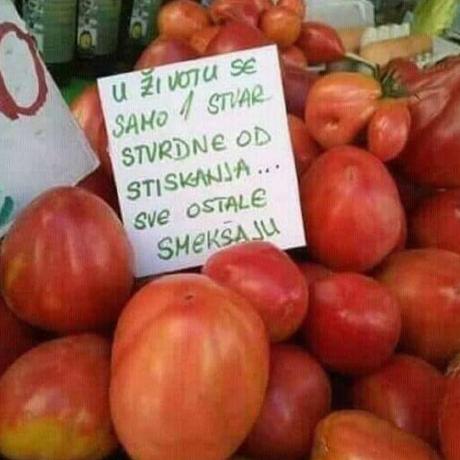 U ŽIVOTU SE
SAMO 1 STVAR
STVRDNE OD
STISKANJA...
SVE OSTALE
SMEKŠAJU
0